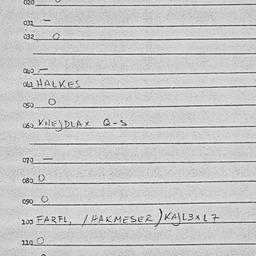 020
031 –
032 O
040 –
041 HALKES
050 O
060 KNEJDLAX Q-S
070 –
080 O
090 O
100 FARFL, /HAKMESER/KAJL3XL7
110 O